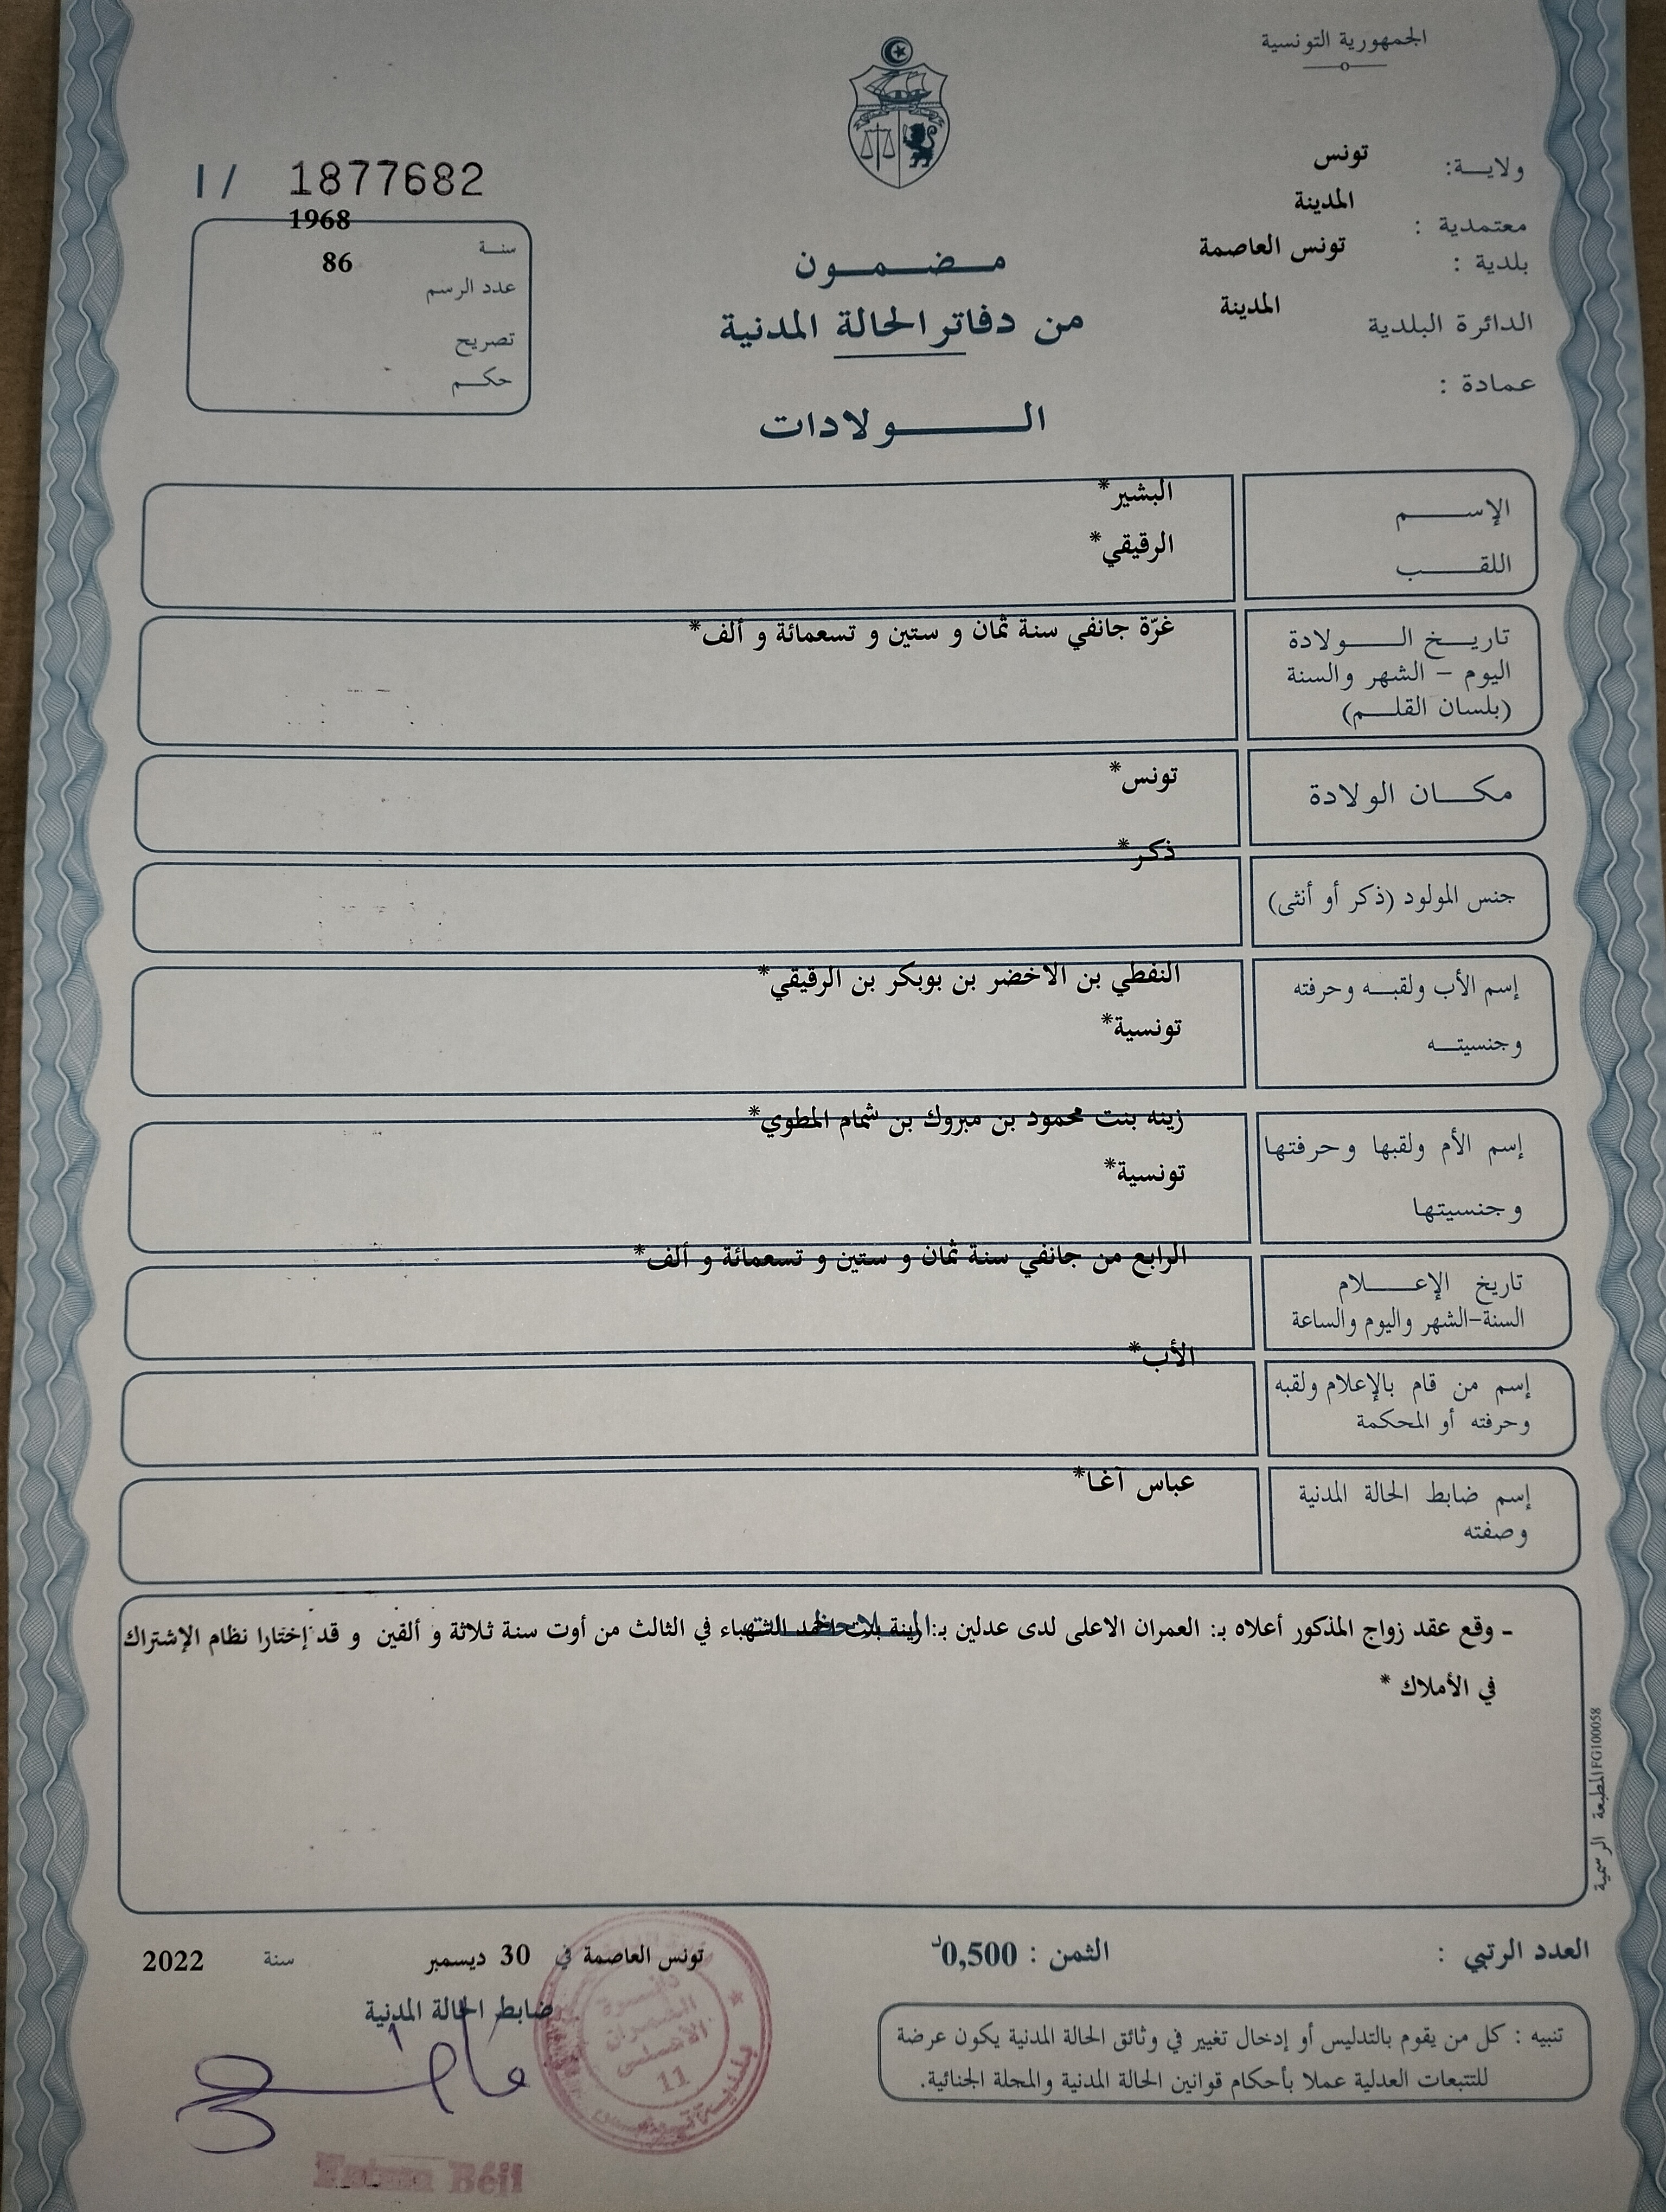 الجمهورية التونسية
ولايـــة: تونس
معتمدية : المدينة
بلدية : تونس العاصمة
الدائرة البلدية المدينة
عمادة :
مـــضـــمـــون
من دفاتر الحالة المدنية
الـــــولادات
I/ 1877682
سنـــة 1968
عدد الرسم 86
تصريح
حكـــم
الإســـــم البشير*
اللقـــــب الرقيقي*
تاريـــخ الـــــولادة غرّة جانفي سنة ثمان و ستين و تسعمائة و ألف*
اليوم – الشهر والسنة
(بلسان القلـــم)
مكـــان الولادة تونس*
جنس المولود (ذكر أو أنثى) ذكر*
إسم الأب ولقبـــه وحرفته النفطي بن الاخضر بن بوبكر بن الرقيقي*
وجنسيتـــه تونسية*
إسم الأم ولقبها وحرفتها زينه بنت محمود بن مبروك بن شمام المطوي*
وجنسيتها تونسية*
تاريخ الإعـــــلام الرابع من جانفي سنة ثمان و ستين و تسعمائة و ألف*
السنة-الشهر واليوم والساعة
إسم من قام بالإعلام ولقبه الأب*
وحرفته أو المحكمة
إسم ضابط الحالة المدنية عباس آغا*
وصفته
- وقع عقد زواج المذكور أعلاه بـ: العمران الاعلى لدى عدلين بـ: الشهباء في الثالث من أوت سنة ثلاثة و ألفين و قد إختارا نظام الإشتراك
في الأملاك *
المطبعة الرسمية FG100058
العدد الرتبي :
الثمن : 0,500د
تونس العاصمة في 30 ديسمبر سنة 2022
ضابط الحالة المدنية
دائرة
العمران
الأعلى
11
بلدية تونس
تنبيه : كل من يقوم بالتدليس أو إدخال تغيير في وثائق الحالة المدنية يكون عرضة
للتتبعات العدلية عملا بأحكام قوانين الحالة المدنية والمجلة الجنائية.